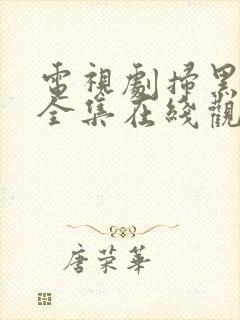 電視劇掃黑
全集在綫觀
唐荣華